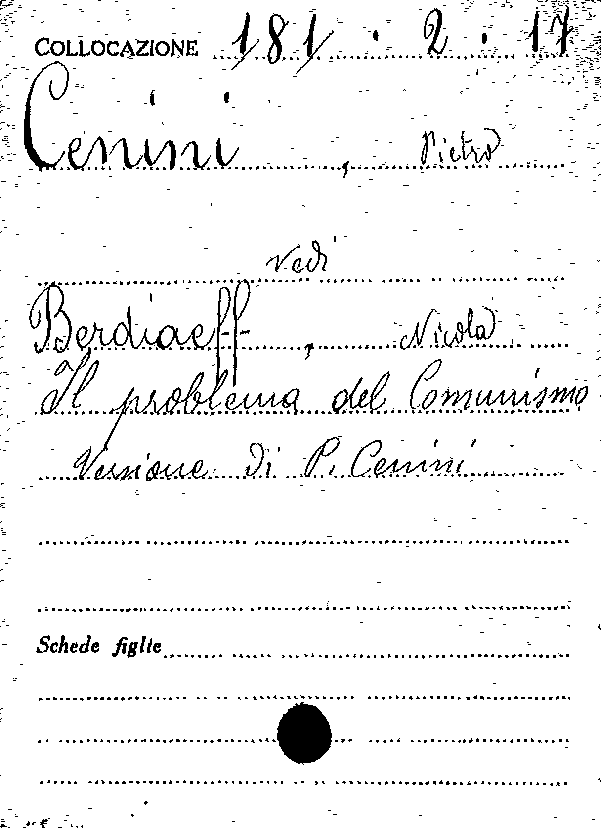 COLLOCAZIONE 181 · 2 · 17
Cenini, Pietro
vedi
Berdiaeff, Nicola
Il problema del Comunismo
Versione di P. Cenini
Schede figlie